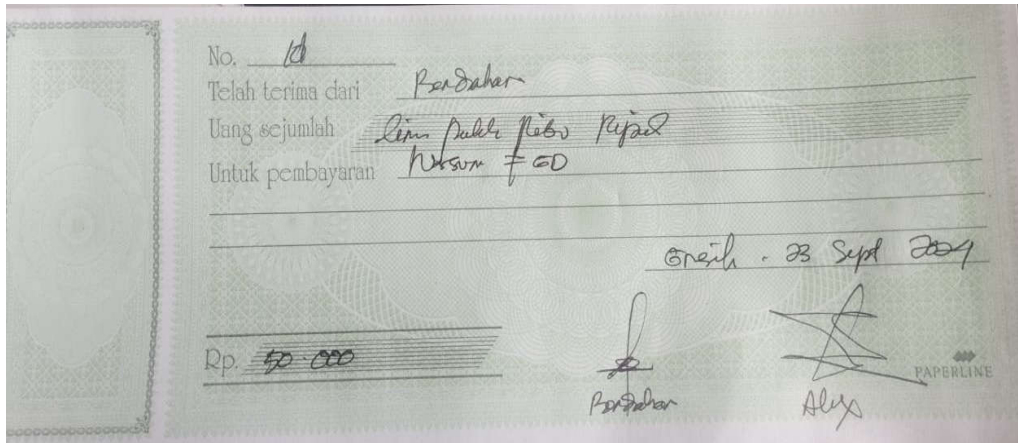 No. 10
Telah terima dari Bendahar
Uang sejumlah lima puluh Ribu Rupiah
Untuk pembayaran Narsum FGD
Gresik . 23 Sept 2024
Rp. 50.000
PAPERLINE
Bendahar Alex